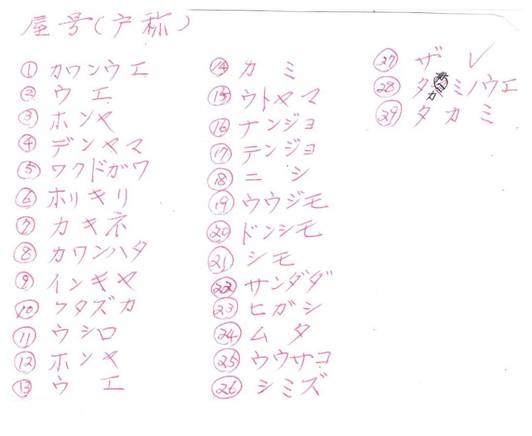 屋号(戸称)
① カワンウエ
② ウエ
③ ホンヤ
④ デンヤマ
⑤ ワクドガワ
⑥ ホリキリ
⑦ カキネ
⑧ カワンハタ
⑨ インキヤ
⑩ クタズカ
⑪ ウシロ
⑫ ホンヤ
⑬ ウエ
⑭ カミ
⑮ ウトヤマ
⑯ ナンジョ
⑰ テンジョ
⑱ ニシ
⑲ ウウジモ
⑳ ドンシモ
㉑ シモ
㉒ サンダダ
㉓ ヒガシ
㉔ ムタ
㉕ ウウサコ
㉖ シミズ
㉗ ザレ
㉘ タカミノウエ
㉙ タカミ